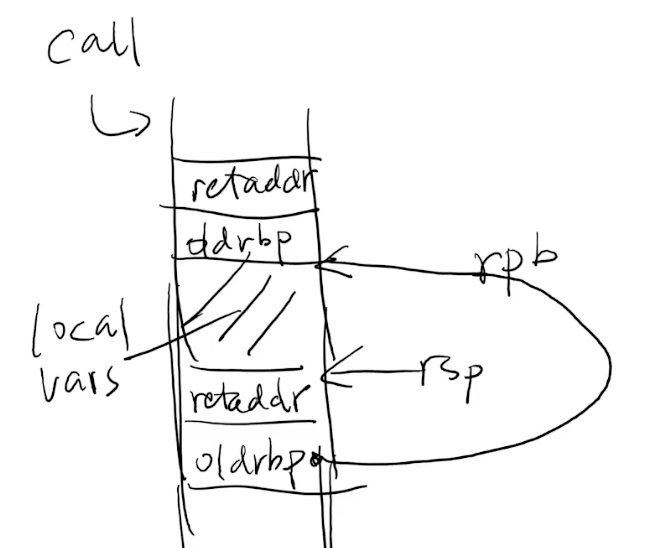 call
retaddr
oldrbp
rpb
local
vars
rsp
retaddr
oldrbp